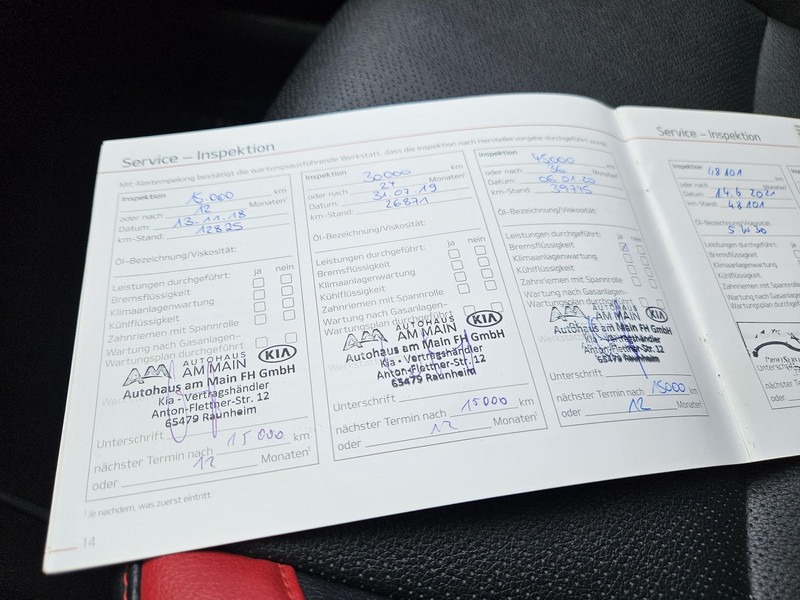 Service – Inspektion
Mit Abstempelung bestätigt die wartungsausführende Werkstatt, dass die Inspektion nach Herstellervorgabe durchgeführt wurde.
Inspektion 15.000 km
oder nach 12 Monaten¹
Datum: 13.11.18
km-Stand: 12825
Öl-Bezeichnung/Viskosität:
Leistungen durchgeführt: ja nein
Bremsflüssigkeit
Klimaanlagenwartung
Kühlflüssigkeit
Zahnriemen mit Spannrolle
Wartung nach Gasanlagen-
Wartungsplan durchgeführt
AUTOHAUS
AM MAIN KIA
Autohaus am Main FH GmbH
Kia - Vertragshändler
Anton-Flettner-Str. 12
65479 Raunheim
Unterschrift
nächster Termin nach 15000 km
oder 12 Monaten¹
¹Je nachdem, was zuerst eintritt
14
Inspektion 30000 km
oder nach 24 Monaten¹
Datum: 31.07.19
km-Stand: 26871
Öl-Bezeichnung/Viskosität:
Leistungen durchgeführt: ja nein
Bremsflüssigkeit
Klimaanlagenwartung
Kühlflüssigkeit
Zahnriemen mit Spannrolle
Wartung nach Gasanlagen-
Wartungsplan durchgeführt
AUTOHAUS
AM MAIN KIA
Autohaus am Main FH GmbH
Kia - Vertragshändler
Anton-Flettner-Str. 12
65479 Raunheim
Unterschrift
nächster Termin nach 15000 km
oder 12 Monaten¹
Inspektion 45000 km
oder nach 36 Monaten¹
Datum: 06.01.20
km-Stand: 39745
Öl-Bezeichnung/Viskosität:
Leistungen durchgeführt: ja nein
Bremsflüssigkeit
Klimaanlagenwartung
Kühlflüssigkeit
Zahnriemen mit Spannrolle
Wartung nach Gasanlagen-
Wartungsplan durchgeführt
AUTOHAUS
AM MAIN KIA
Autohaus am Main FH GmbH
Kia - Vertragshändler
Anton-Flettner-Str. 12
65479 Raunheim
Unterschrift
nächster Termin nach 15000 km
oder 12 Monaten¹
Service – Inspektion
Inspektion 48101 km
oder nach Monaten¹
Datum: 14.6.2021
km-Stand: 48101
Öl-Bezeichnung/Viskosität:
5W30
Leistungen durchgeführt:
Bremsflüssigkeit
Klimaanlagenwartung
Kühlflüssigkeit
Zahnriemen mit Spannrolle
Wartung nach Gasanlagen-
Wartungsplan durchgeführt
nächster Termin nach
oder